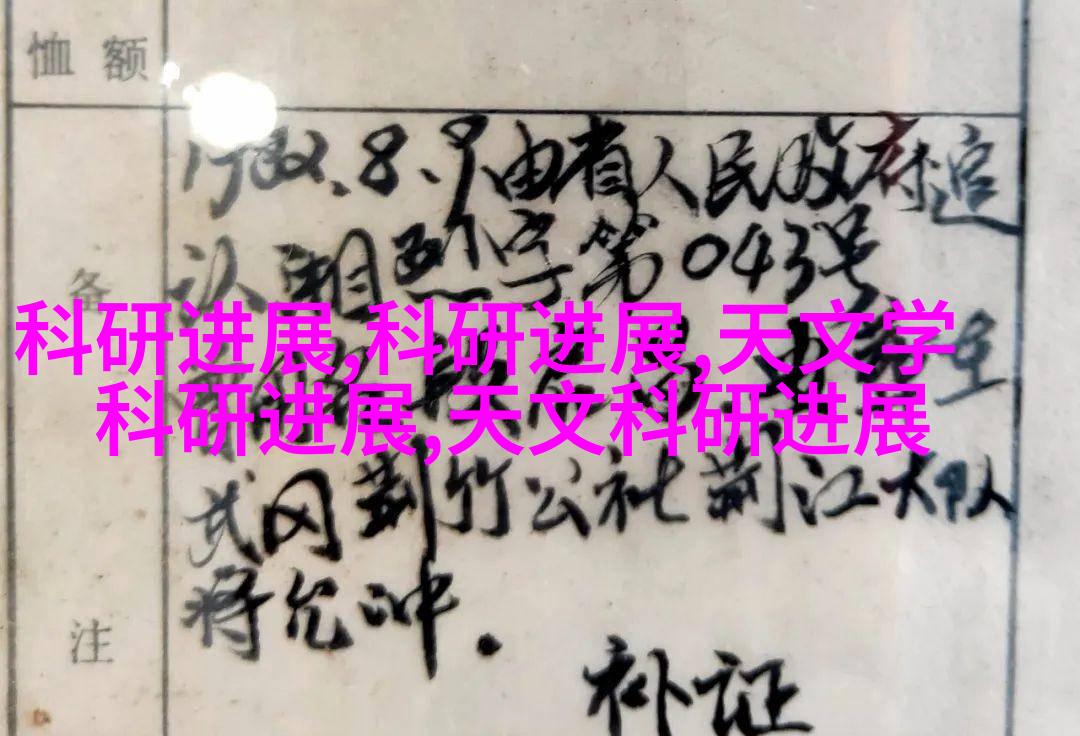 恤额
1982.8.9由省人民政府追
认 湘烈字第043号
备
科研进展,科研进展,天文学
科研进展,天文科研进展
武冈荆竹公社荆江大队
蒋允冲.
注
补证